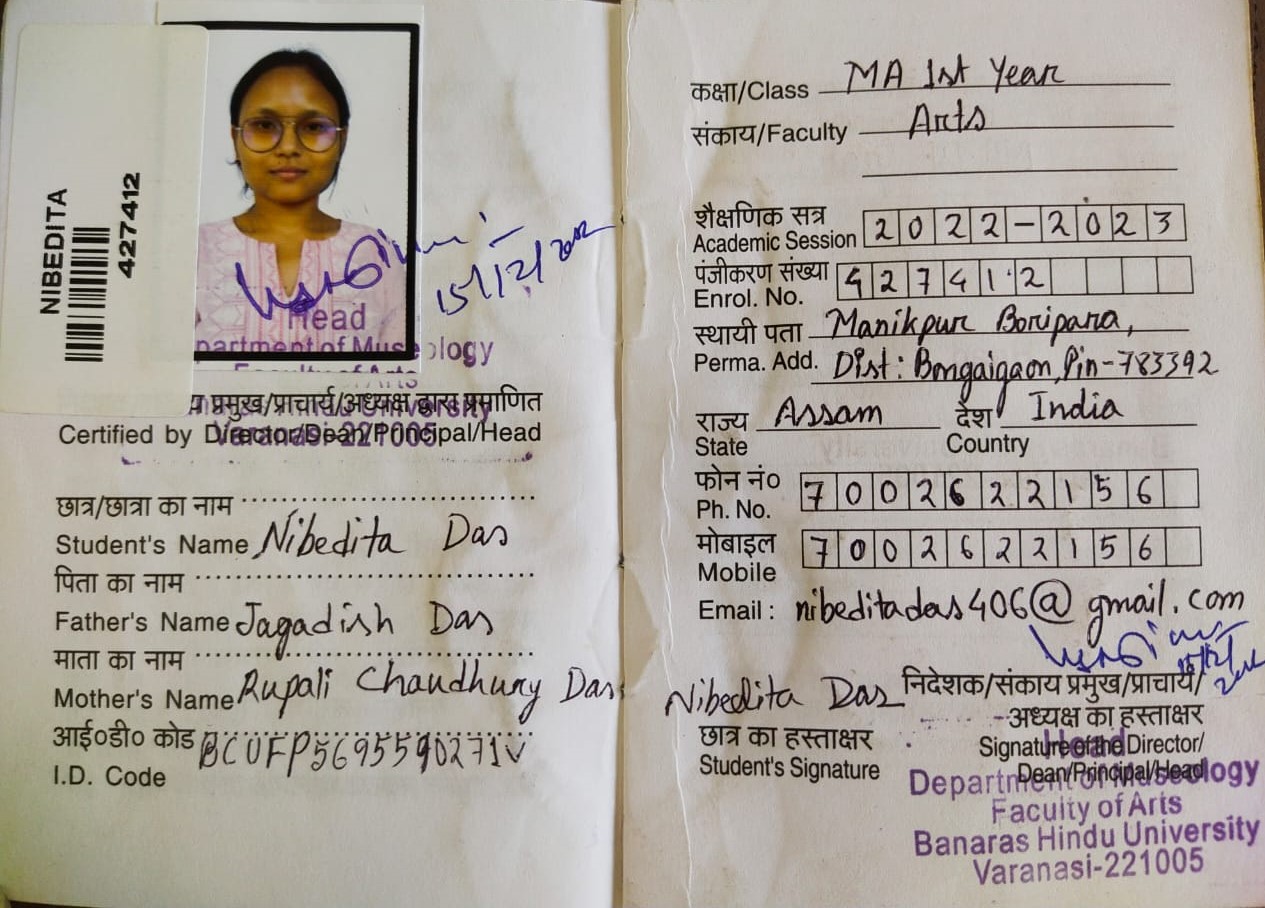 NIBEDITA
427412
15/12/2022
Head
partment of Museology
Faculty of Arts
प्रमुख/प्राचार्य/अध्यक्ष द्वारा प्रमाणित
Certified by Director/Dean/Principal/Head
Varanasi-221005
छात्र/छात्रा का नाम
Student's Name Nibedita Das
पिता का नाम
Father's Name Jagadish Das
माता का नाम
Mother's Name Rupali Chaudhury Das
आई०डी० कोड
I.D. Code
कक्षा/Class MA 1st Year
संकाय/Faculty Arts
शैक्षणिक सत्र
Academic Session 2022-2023
पंजीकरण संख्या
Enrol. No. 427412
स्थायी पता Manikpur Boripara,
Perma. Add. Dist: Bongaigaon, Pin-783392
राज्य Assam देश India
State Country
फोन नं०
Ph. No. 7002622156
मोबाइल
Mobile 7002622156
Email : nibeditadas406@gmail.com
Nibedita Das
छात्र का हस्ताक्षर
Student's Signature
निदेशक/संकाय प्रमुख/प्राचार्य/
अध्यक्ष का हस्ताक्षर
Signature of the Director/
Dean/Principal/Head
Head
Department of Museology
Faculty of Arts
Banaras Hindu University
Varanasi-221005